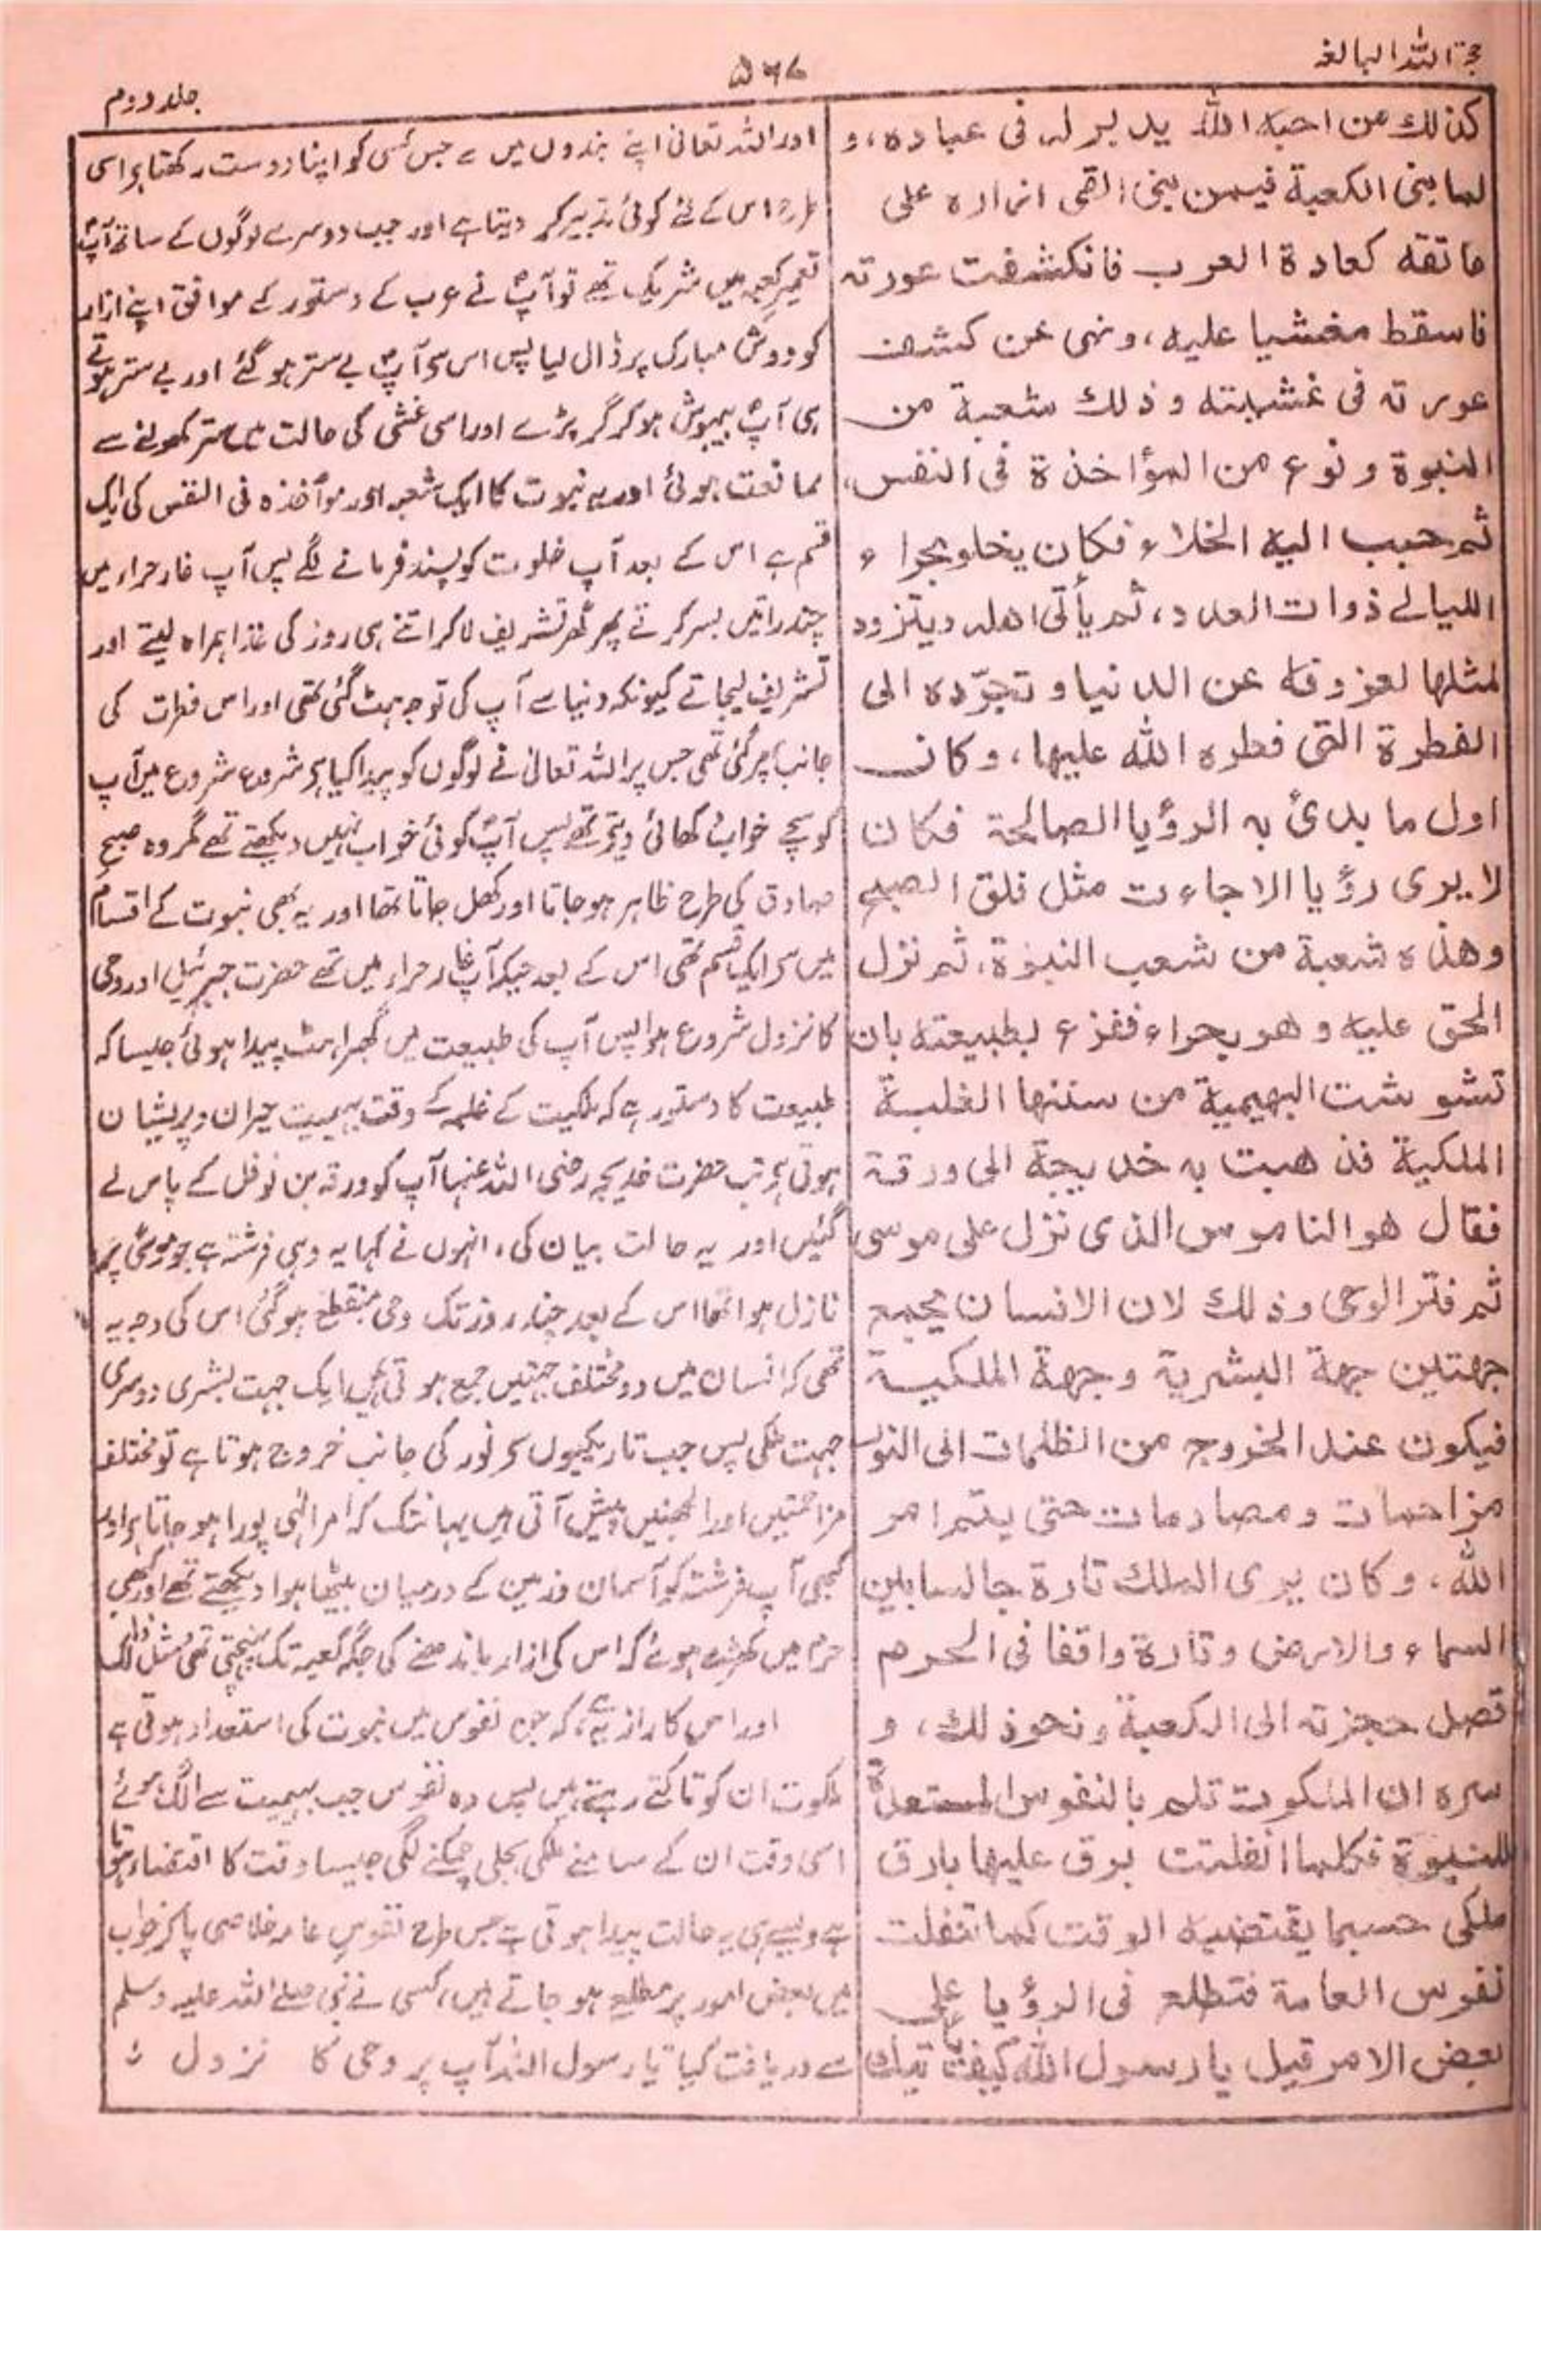 حجۃ اللہ البالغہ
۵۶۷
جلد دوم
كذلك من احبه الله يدبر له فى عباده، و
لما بنى الكعبة فيمن بنى القى ازاره على
عاتقه كعادة العرب فانكشفت عورته
فاسقط مغشيا عليه، ونهى عن كشف
عورته فى غشيته وذلك شعبة من
النبوة ونوع من المؤاخذة فى النفس،
ثم حبب اليه الخلاء فكان يخلو بحراء
الليالے ذوات العدد، ثم يأتى اهله ويتزود
لمثلها لعزوفه عن الدنيا و تجرّده الى
الفطرة التى فطره الله عليها، وكان
اول ما بدئ به الرؤيا الصالحة فكان
لا يرى رؤيا الا جاءت مثل فلق الصبح
وهذه شعبة من شعب النبوة، ثم نزل
الحق عليه وهو بحراء ففزع بطبيعته بان
تشوشت البهيمية من سننها الغلبة
الملكية فذهبت به خديجة الى ورقة
فقال هو الناموس الذى نزل على موسى
ثم فتر الوحى وذلك لان الانسان يجمع
جهتين جهة البشرية وجهة الملكية
فيكون عند الخروج من الظلمات الى النور
مزاحمات ومصادمات حتى يتم امر
الله، وكان يرى الملك تارة جالسا بين
السماء والارض وتارة واقفا فى الحرم
تصل حجزته الى الكعبة ونحو ذلك، و
سره ان الملكوت تلم بالنفوس المستعدة
للنبوة فكلما انفلتت برق عليها بارق
ملكى حسبما يقتضيه الوقت كما تنفلت
نفوس العامة فتطلع فى الرؤيا على
بعض الامر قيل يا رسول الله كيف يأتيك
اور اللہ تعالیٰ اپنے بندوں میں سے جس کسی کو اپنا دوست رکھتا ہے اسی
طرح اس کے لئے کوئی تدبیر کر دیتا ہے اور جب دوسرے لوگوں کے ساتھ آپؐ
تعمیر کعبہ میں شریک تھے تو آپؐ نے عرب کے دستور کے موافق اپنے ازار
کو دوش مبارک پر ڈال لیا پس اس سے آپؐ بے ستر ہو گئے اور بے ستر ہوتے
ہی آپؐ بیہوش ہو کر گر پڑے اور اسی غشی کی حالت میں ستر کھولنے سے
ممانعت ہوئی اور یہ نبوت کا ایک شعبہ اور مواخذہ فی النفس کی ایک
قسم ہے اس کے بعد آپ خلوت کو پسند فرمانے لگے پس آپ غار حراء میں
چند راتیں بسر کرتے پھر گھر تشریف لا کر اتنے ہی روز کی غذا ہمراہ لیتے اور
تشریف لیجاتے کیونکہ دنیا سے آپ کی توجہ ہٹ گئی تھی اور اس فطرت کی
جانب پھر گئی تھی جس پر اللہ تعالیٰ نے لوگوں کو پیدا کیا ہے شروع شروع میں آپ
کو سچے خواب دکھائی دیتے تھے پس آپؐ کوئی خواب نہیں دیکھتے تھے مگر وہ صبح
صادق کی طرح ظاہر ہو جاتا اور کھل جاتا تھا اور یہ بھی نبوت کے اقسام
میں سے ایک قسم تھی اس کے بعد جبکہ آپؐ غار حراء میں تھے حضرت جبرئیل اور وحی
کا نزول شروع ہوا پس آپ کی طبیعت میں گھبراہٹ پیدا ہوئی جیسا کہ
طبیعت کا دستور ہے کہ ملکیت کے غلبہ کے وقت بہیمیت حیران و پریشان
ہوتی ہے تب حضرت خدیجہ رضی اللہ عنہا آپ کو ورقہ بن نوفل کے پاس لے
گئیں اور یہ حالت بیان کی، انہوں نے کہا یہ وہی فرشتہ ہے جو موسیٰؑ پر
نازل ہوا تھا اس کے بعد چند روز تک وحی منقطع ہو گئی اس کی وجہ یہ
تھی کہ انسان میں دو مختلف جہتیں جمع ہوتی ہیں ایک جہت بشری دوسری
جہت ملکی پس جب تاریکیوں سے نور کی جانب خروج ہوتا ہے تو مختلف
مزاحمتیں اور الجھنیں پیش آتی ہیں یہانتک کہ امر الٰہی پورا ہو جاتا ہے اور
کبھی آپ فرشتہ کو آسمان و زمین کے درمیان بیٹھا ہوا دیکھتے تھے اور کبھی
حرم میں کھڑے ہوئے کہ اس کی ازار باندھنے کی جگہ کعبہ تک پہنچتی تھی مثل ذالک
اور اس کا راز یہ ہے، کہ جن نفوس میں نبوت کی استعداد ہوتی ہے
ملکوت ان کو تاکتے رہتے ہیں پس وہ نفوس جب بہیمیت سے الگ ہوئے
اسی وقت ان کے سامنے ملکی بجلی چمکنے لگی جیسا وقت کا اقتضاء ہوتا
ہے ویسے ہی یہ حالت پیدا ہوتی ہے جس طرح نفوس عامہ خلاصی پا کر خواب
میں بعض امور پر مطلع ہو جاتے ہیں، کسی نے نبی صلے اللہ علیہ وسلم
سے دریافت کیا یا رسول اللہ آپ پر وحی کا نزول